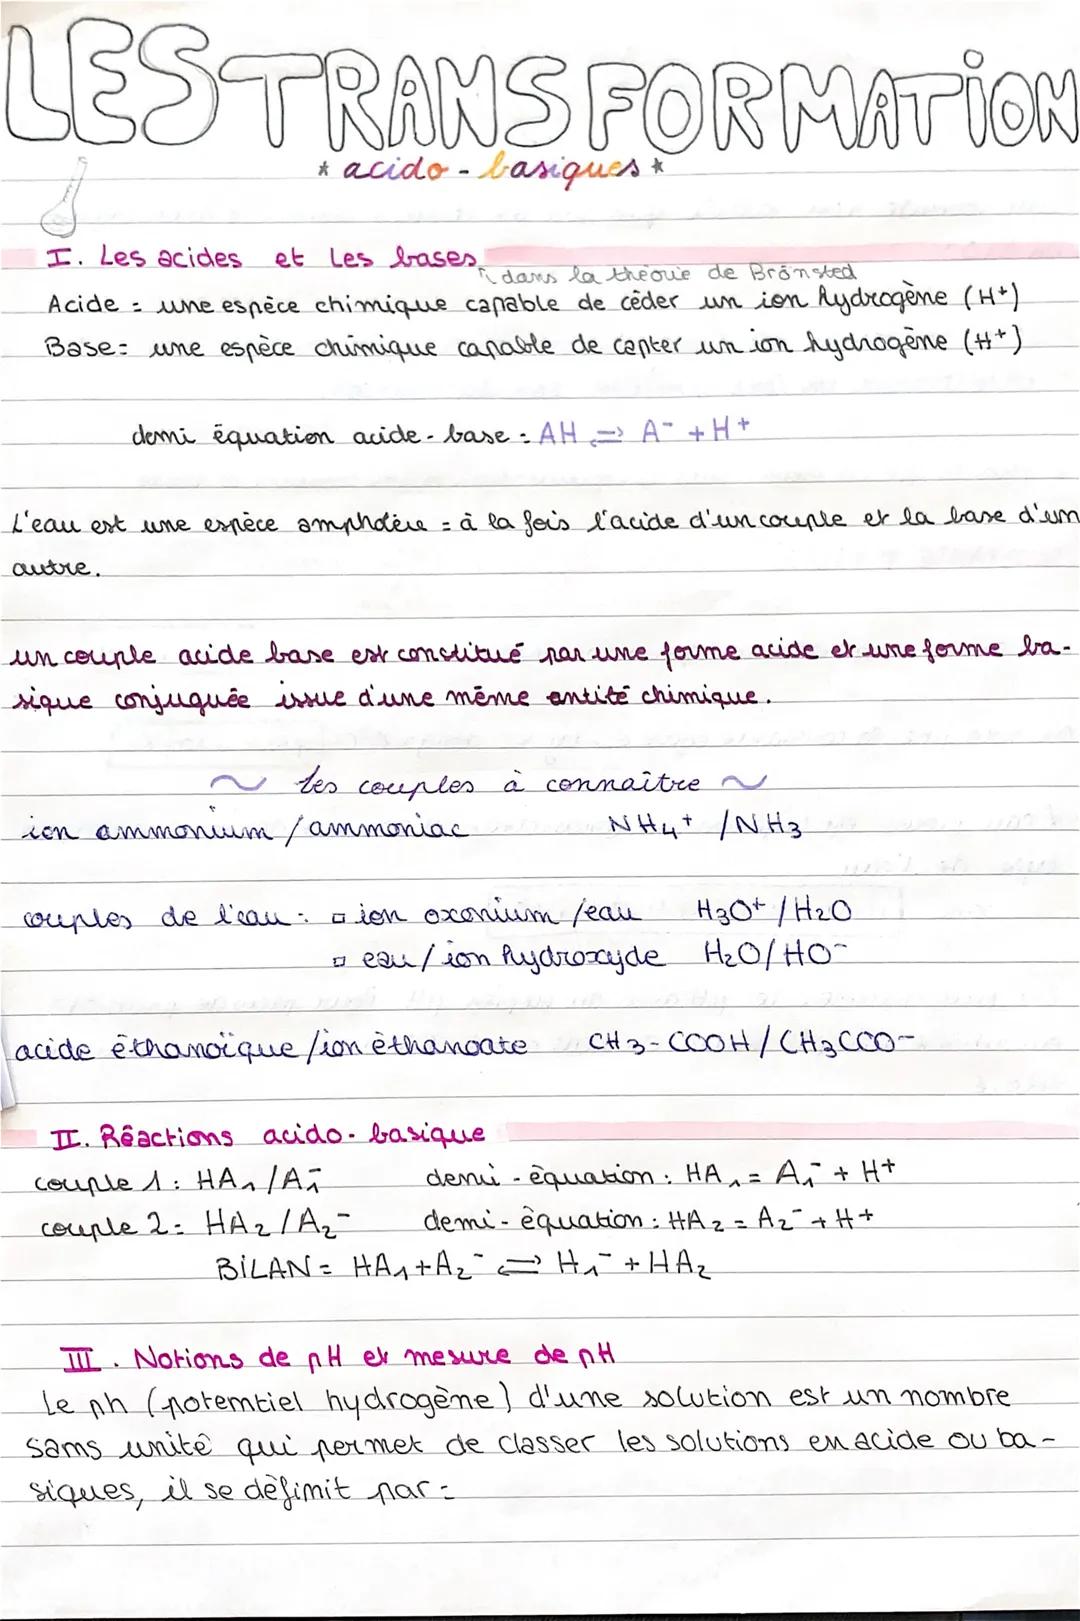 LES TRANSFORMATION
* acido - basiques *
I. Les acides et les bases
dans la théorie de Brönsted
Acide = une espèce chimique capable de céder un ion hydrogène (H⁺)
Base = une espèce chimique capable de capter un ion hydrogène (H⁺)
demi équation acide - base : AH ⇌ A⁻ + H⁺
L'eau est une espèce amphotère = à la fois l'acide d'un couple et la base d'un
autre.
un couple acide base est constitué par une forme acide et une forme ba-
sique conjuguée issue d'une même entité chimique.
~ les couples à connaître ~
ion ammonium / ammoniac NH₄⁺ / NH₃
couples de l'eau : ▫ ion oxonium / eau H₃O⁺ / H₂O
▫ eau / ion hydroxyde H₂O / HO⁻
acide éthanoïque / ion éthanoate CH₃-COOH / CH₃COO⁻
II. Réactions acido - basique
couple 1 : HA₁ / A₁⁻ demi - équation : HA₁ = A₁⁻ + H⁺
couple 2 = HA₂ / A₂⁻ demi - équation : HA₂ = A₂⁻ + H⁺
BILAN = HA₁ + A₂⁻ ⇌ H₁⁻ + HA₂
III. Notions de pH et mesure de pH
Le ph (potentiel hydrogène) d'une solution est un nombre
sans unité qui permet de classer les solutions en acide ou ba-
siques, il se définit par =